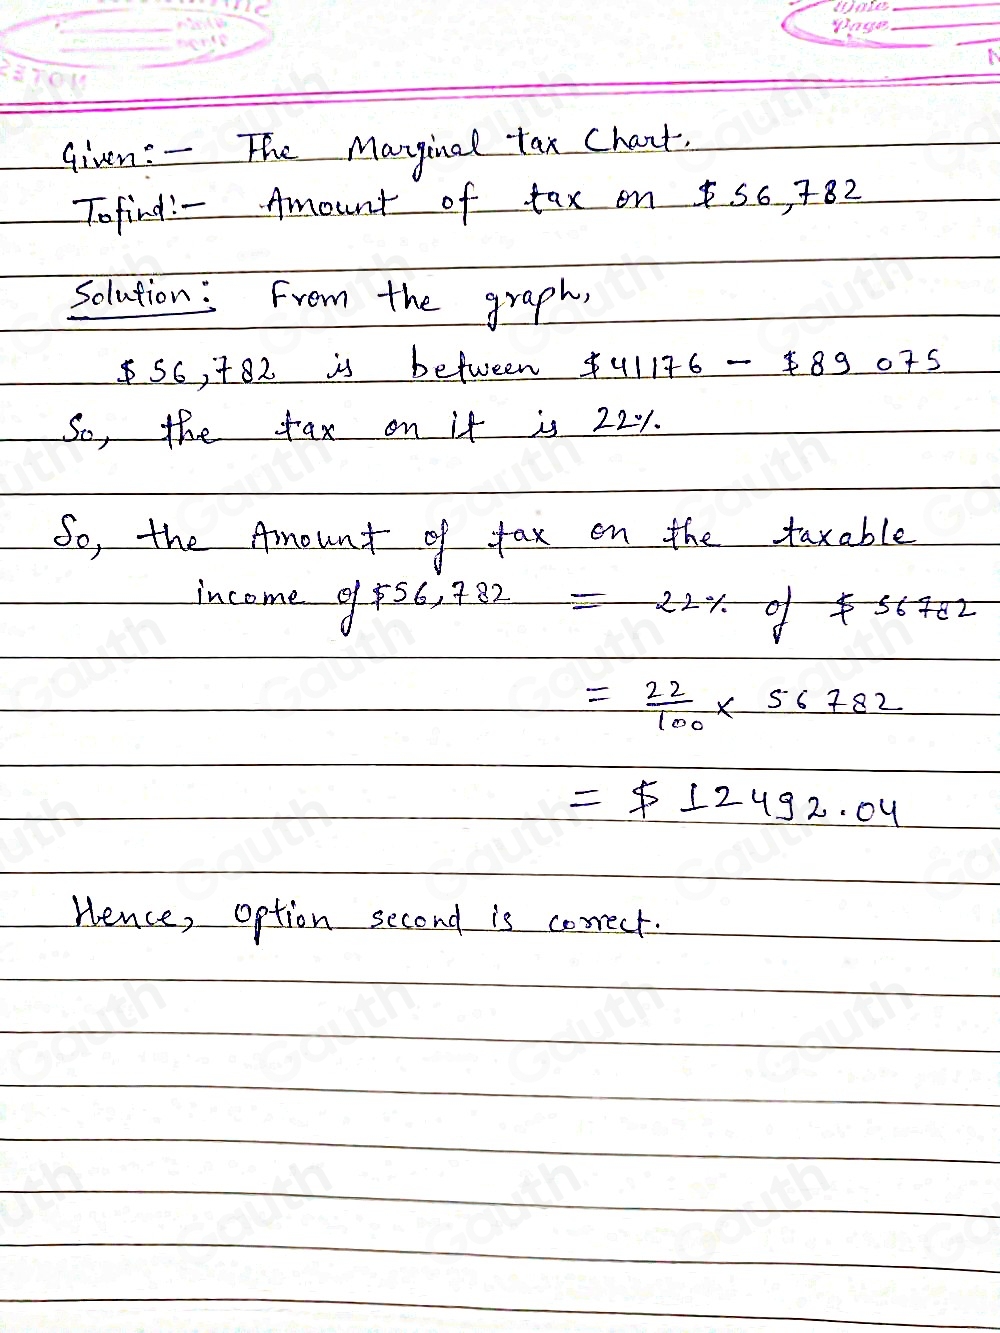 Date
Page
Given:- The Marginal tax Chart.
To find:- Amount of tax on $56,782
Solution: From the graph,
$56,782 is between $41176 - $89 075
So, the tax on it is 22%.
So, the Amount of tax on the taxable
income of $56,782 = 22% of $56782
= 22/100 × 56782
= $12492.04
Hence, option second is correct.
Gauth